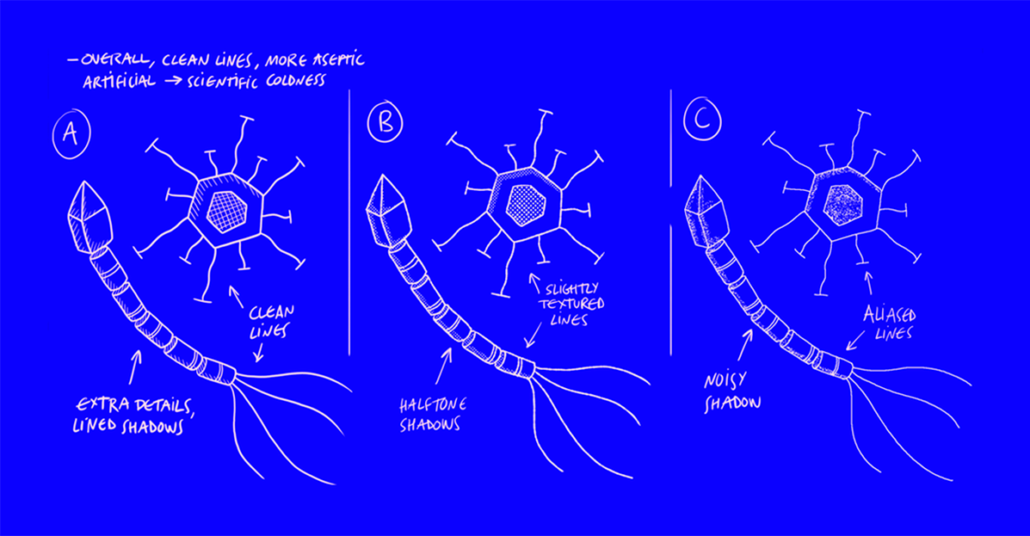 —OVERALL, CLEAN LINES, MORE ASEPTIC
ARTIFICIAL → SCIENTIFIC COLDNESS
A
CLEAN
LINES
EXTRA DETAILS,
LINED SHADOWS
B
SLIGHTLY
TEXTURED
LINES
HALFTONE
SHADOWS
C
ALIASED
LINES
NOISY
SHADOW